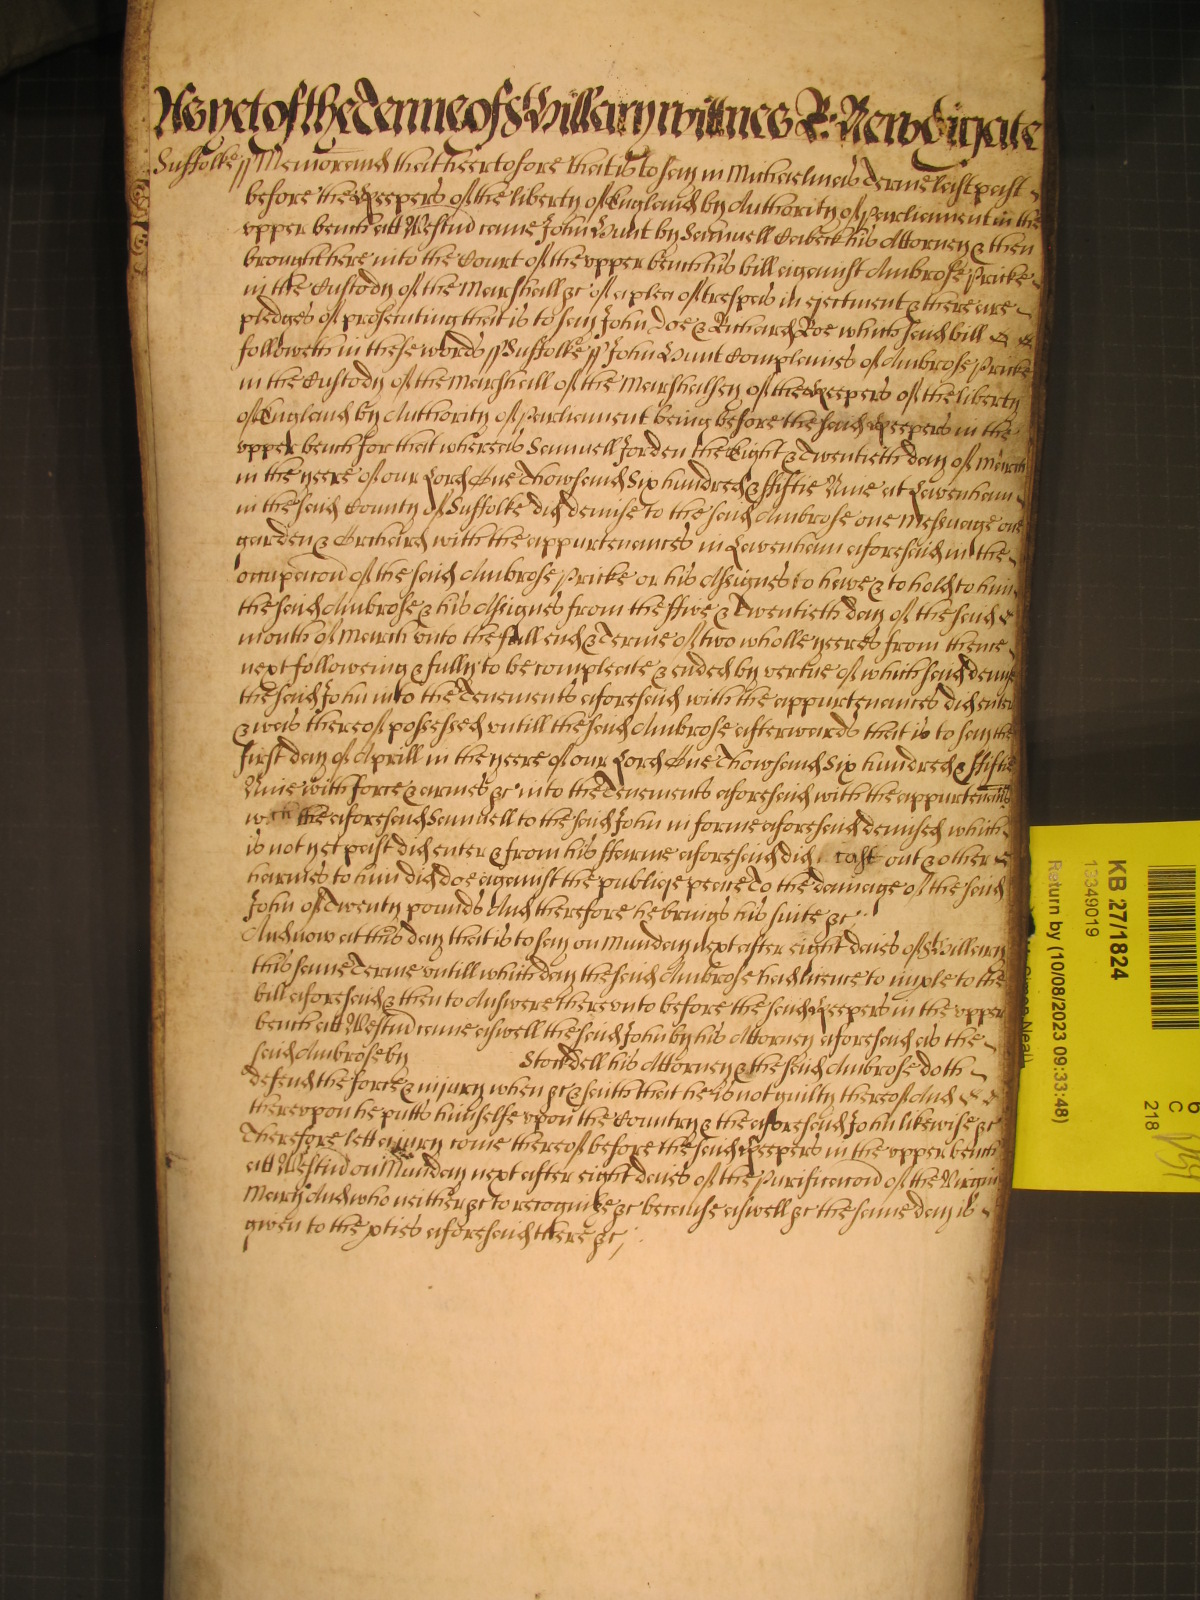 As yet of the Terme of St Hillary wittnes R: Newdigate
Suffolke ss Memorand that heertofore that is to say in Michaelmas Terme last past
before the Keepers of the liberty of England by Authority of Parliament in the
vpper bench att Westm came John Hunt by Samuell Cabeck his Attorney & then
brought here into the Court of the vpper bench his bill against Ambrose Pricke
in the Custody of the Marshall &c of a plea of trespas in ejectment & there are
pledges of prosecuting that is to say John Doe & Richard Roe which said bill
followeth in these words ss Suffolke ss John Hunt Complaines of Ambrose Pricke
in the Custody of the Marshall of the Marshalsey of the Keepers of the liberty
of England by Authority of Parliament being before the said Keepers in the
vpper bench for that whereas Samuell Jorden the Eight & Twentieth day of March
in the yeere of our Lord One Thowsand Six hundred & ffiftie Nine at Lavenham
in the said County of Suffolke did demise to the said Ambrose one Messuage one
garden & Orchard with the appurtenances in Lavenham aforesaid in the
occupacon of the said Ambrose Pricke or his Assignes to have & to hold to him
the said Ambrose & his Assignes from the ffive & Twentieth day of the said
month of March vnto the full end & Terme of two wholle yeeres from thence
next followeing & fully to be compleate & ended by vertue of which said demise
the said John into the Tenements aforesaid with the appurtenances did enter
& was thereof possessed vntill the said Ambrose afterwards that is to say the
first day of Aprill in the yeere of our Lord One Thowsand Six hundred & ffiftie
Nine with force & armes &c into the Tenements aforesaid with the appurtenances
wch the aforesaid Samuell to the said John in forme aforesaid demised which
is not yet past did enter & from his ffarme aforesaid did cast out & other
harmes to him did doe against the publiqe peace To the damage of the said
John of Twenty pounds And therefore he brings his suite &c
And now at this day that is to say on Munday next after eight daies of St Hillary
this same Terme vntill which day the said Ambrose had licence to imple to the
bill aforesaid & then to Answere therevnto before the said Keepers in the vpper
bench att Westm came aswell the said John by his Attorney aforesaid as the
said Ambrose by Stockdell his Attorney & the said Ambrose doth
defend the force & injury when &c & saith that he is not guilty thereof And
therevpon he putts himselfe vpon the Country & the aforesaid John likewise &c
Therefore lett a jury come thereof before the said Keepers in the vpper bench
att Westm on Munday next after eight daies of the Purificacon of the Virgin
Mary And who neither &c to recognize &c because aswell &c the same day is
given to the pties aforesaid there &c
KB 27/1824
13349019
Return by (10/08/2023 09:33:48)
C
218